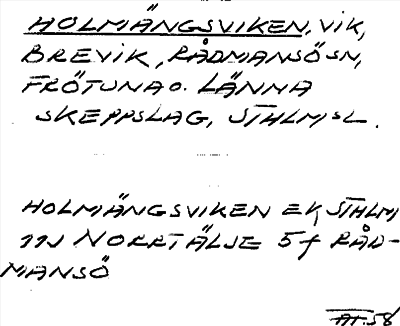 HOLMÄNGSVIKEN, VIK,
BREVIK, RÅDMANSÖ SN,
FRÖTUNA O. LÄNNA
SKEPPSLAG, STHLMS L.
HOLMÄNGSVIKEN EK, STHLM
11J NORRTÄLJE 5f RÅD-
MANSÖ
AT.58